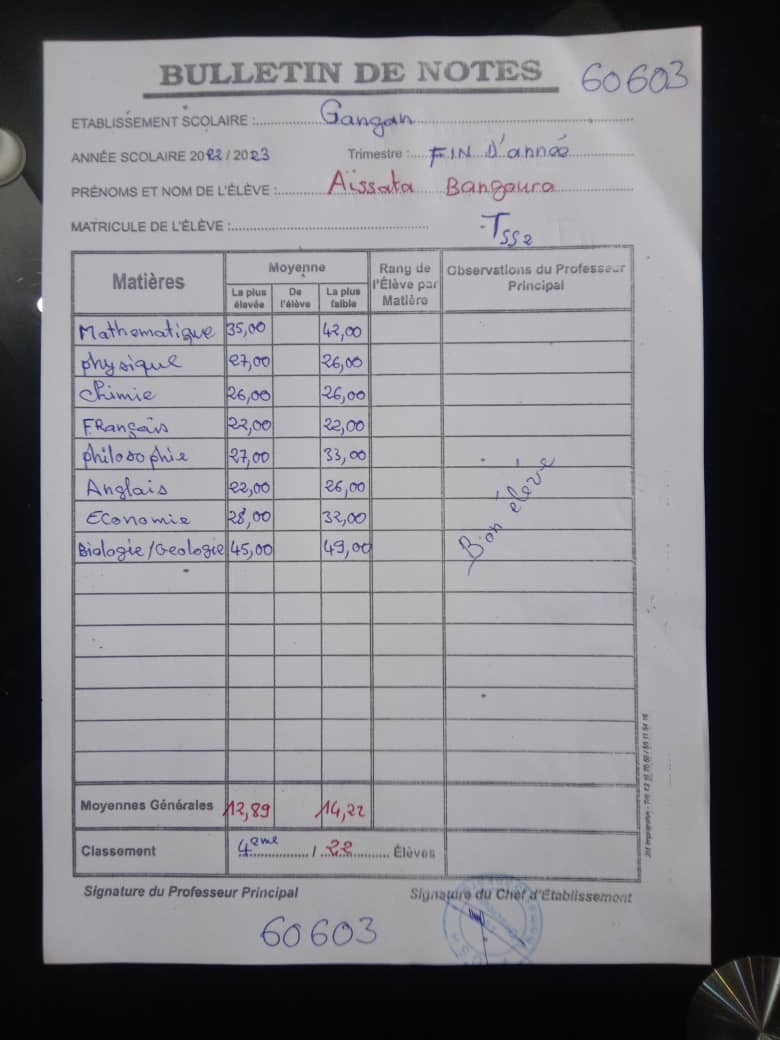 BULLETIN DE NOTES 60603
ETABLISSEMENT SCOLAIRE : Gangan
ANNÉE SCOLAIRE 2022 / 2023 Trimestre : FIN D'année
PRÉNOMS ET NOM DE L'ÉLÈVE : Aïssata Bangoura
MATRICULE DE L'ÉLÈVE :
TSS2
Matières Moyenne Rang de l'Élève par Matière Observations du Professeur Principal
La plus élevée De l'élève La plus faible
Mathematique 35,00 42,00
physique 27,00 26,00
Chimie 26,00 26,00
FRançais 22,00 22,00
philosophie 27,00 33,00
Anglais 22,00 26,00
Economie 28,00 32,00
Biologie/Geologie 45,00 49,00
Bon élève
Moyennes Générales 12,89 14,22
Classement 4eme / 22 Élèves
Signature du Professeur Principal Signature du Chef d'Etablissement
60603